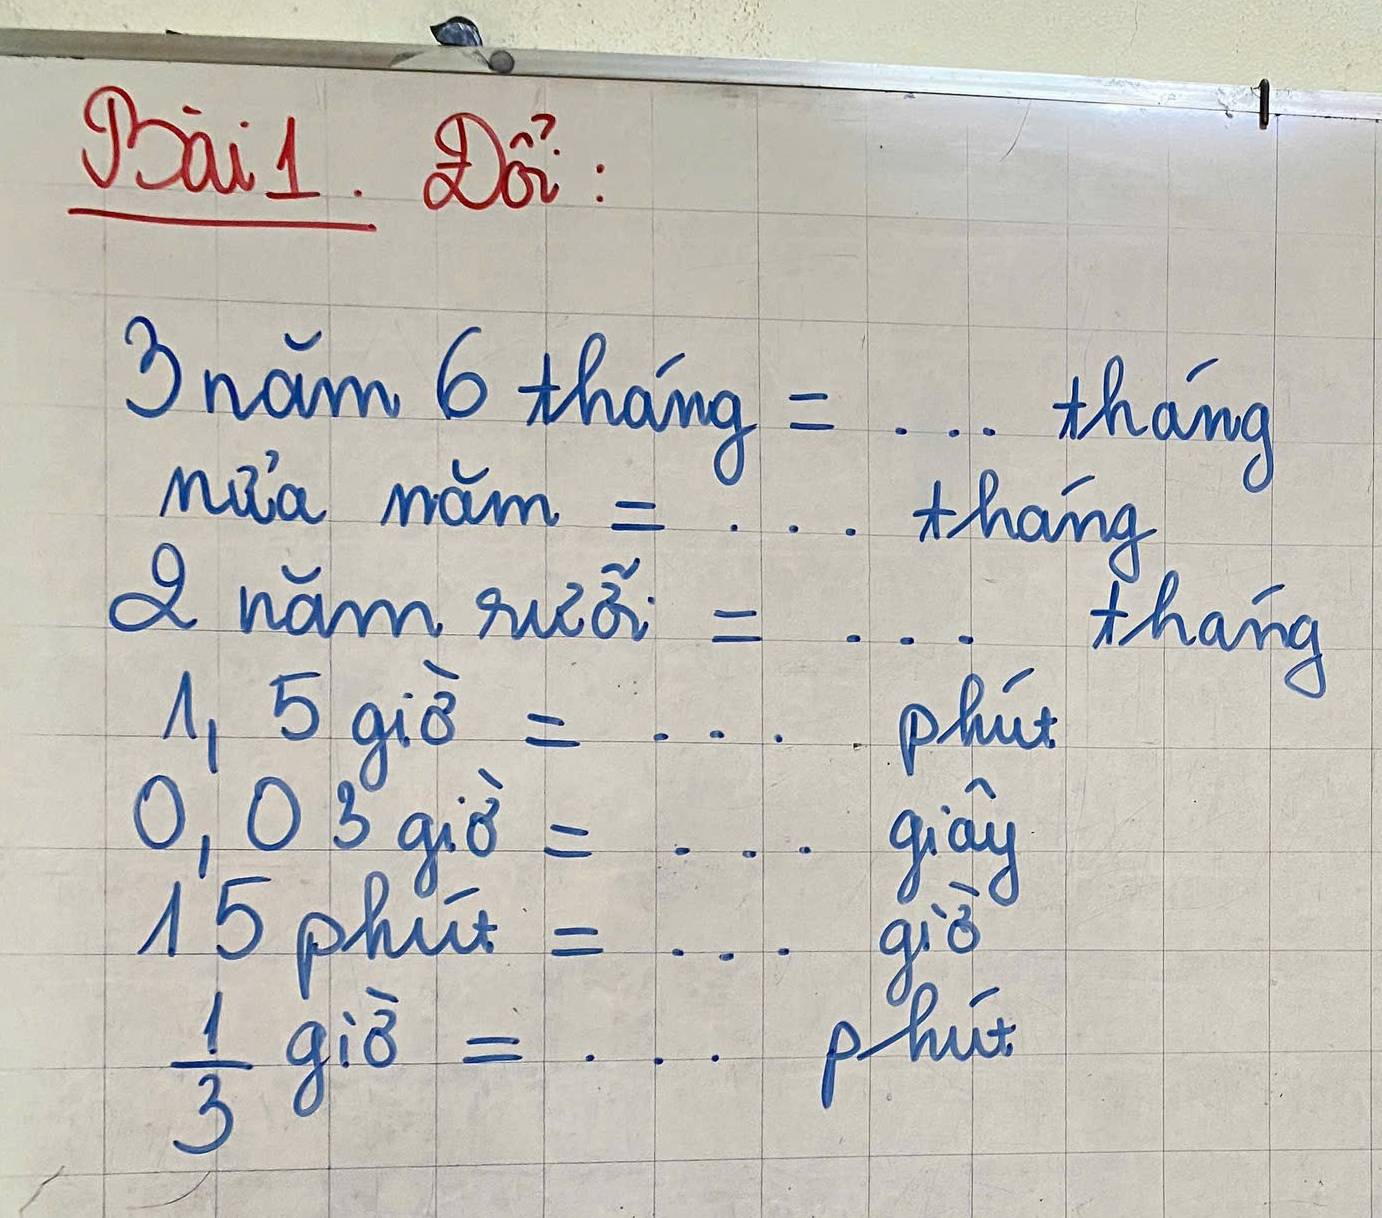 Bài 1. Đổi:
3 năm 6 tháng = ... tháng
nửa năm = ... tháng
2 năm rưỡi = ... tháng
1,5 giờ = ... phút
0,03 giờ = ... giây
15 phút = ... giờ
1/3 giờ = ... phút